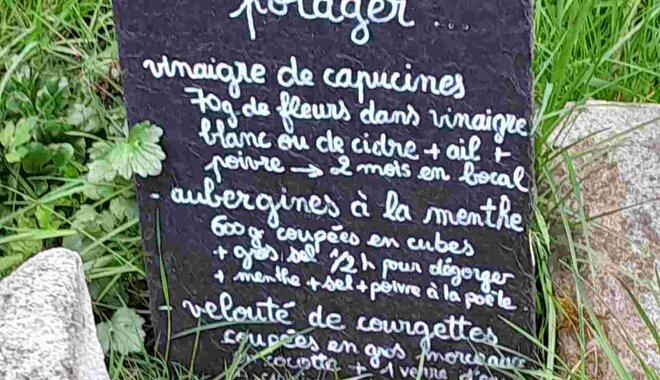 potager ...
vinaigre de capucines
70g de fleurs dans vinaigre
blanc ou de cidre + ail +
poivre → 2 mois en bocal
- aubergines à la menthe
600g coupées en cubes
+ gros sel 1/2 h pour dégorger
+ menthe + sel + poivre à la poële
- velouté de courgettes
coupées en gros morceaux
cocotte + 1 verre d'